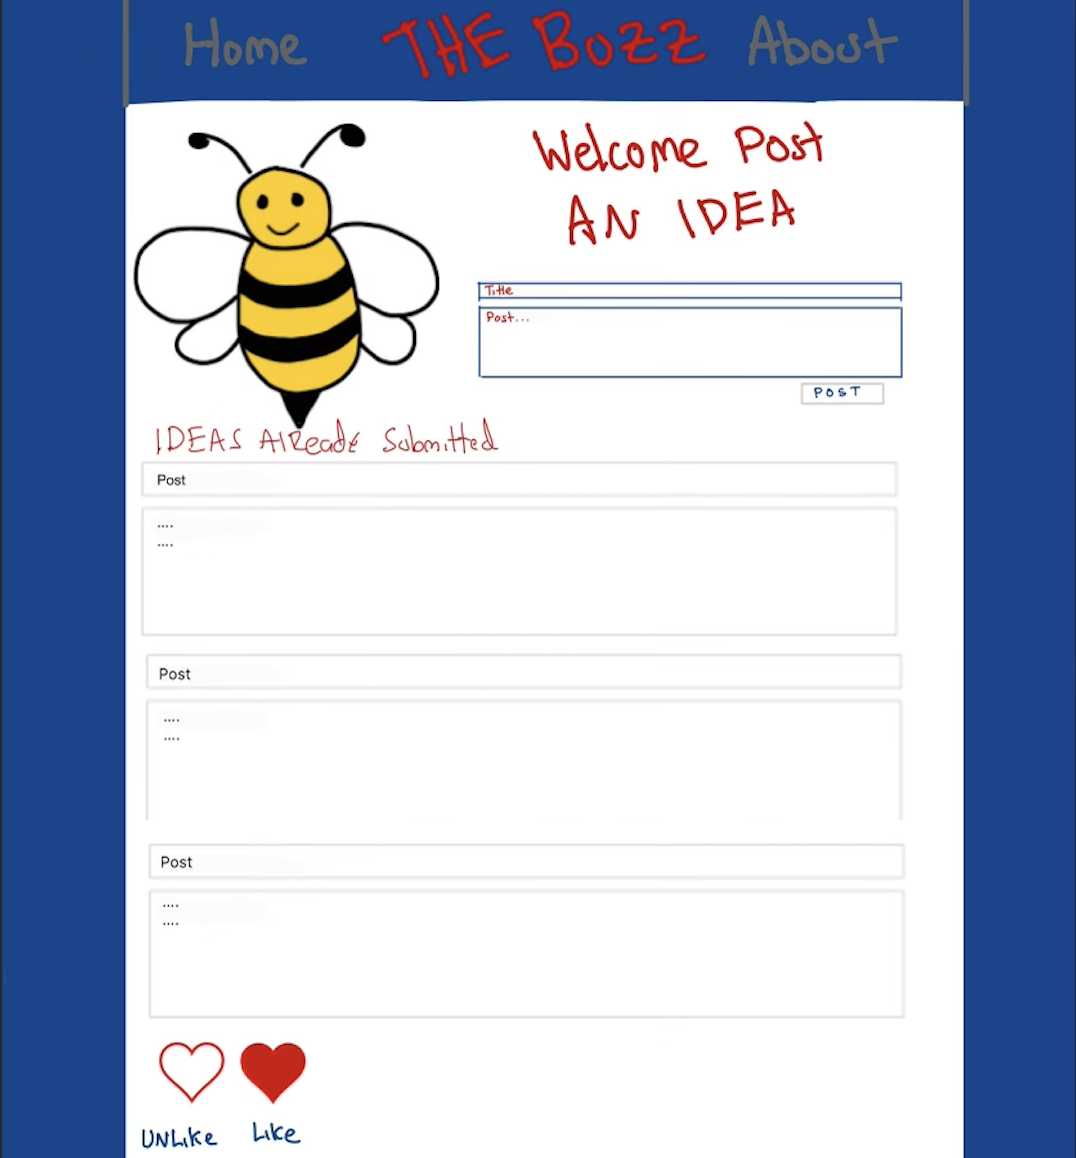 Home THE BUZZ About
Welcome Post
AN IDEA
Title
Post...
POST
IDEAS AlReady Submitted
Post
....
....
Post
....
....
Post
....
....
UNLike Like